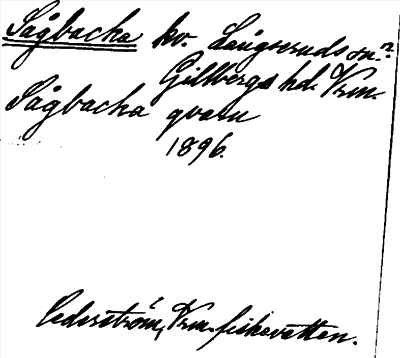 Sågbacka kv. Långseruds sn.
Gillbergs hd. Vrm.
Sågbacka qvarn
1896.
Cederström, Vrm. fiskevatten.